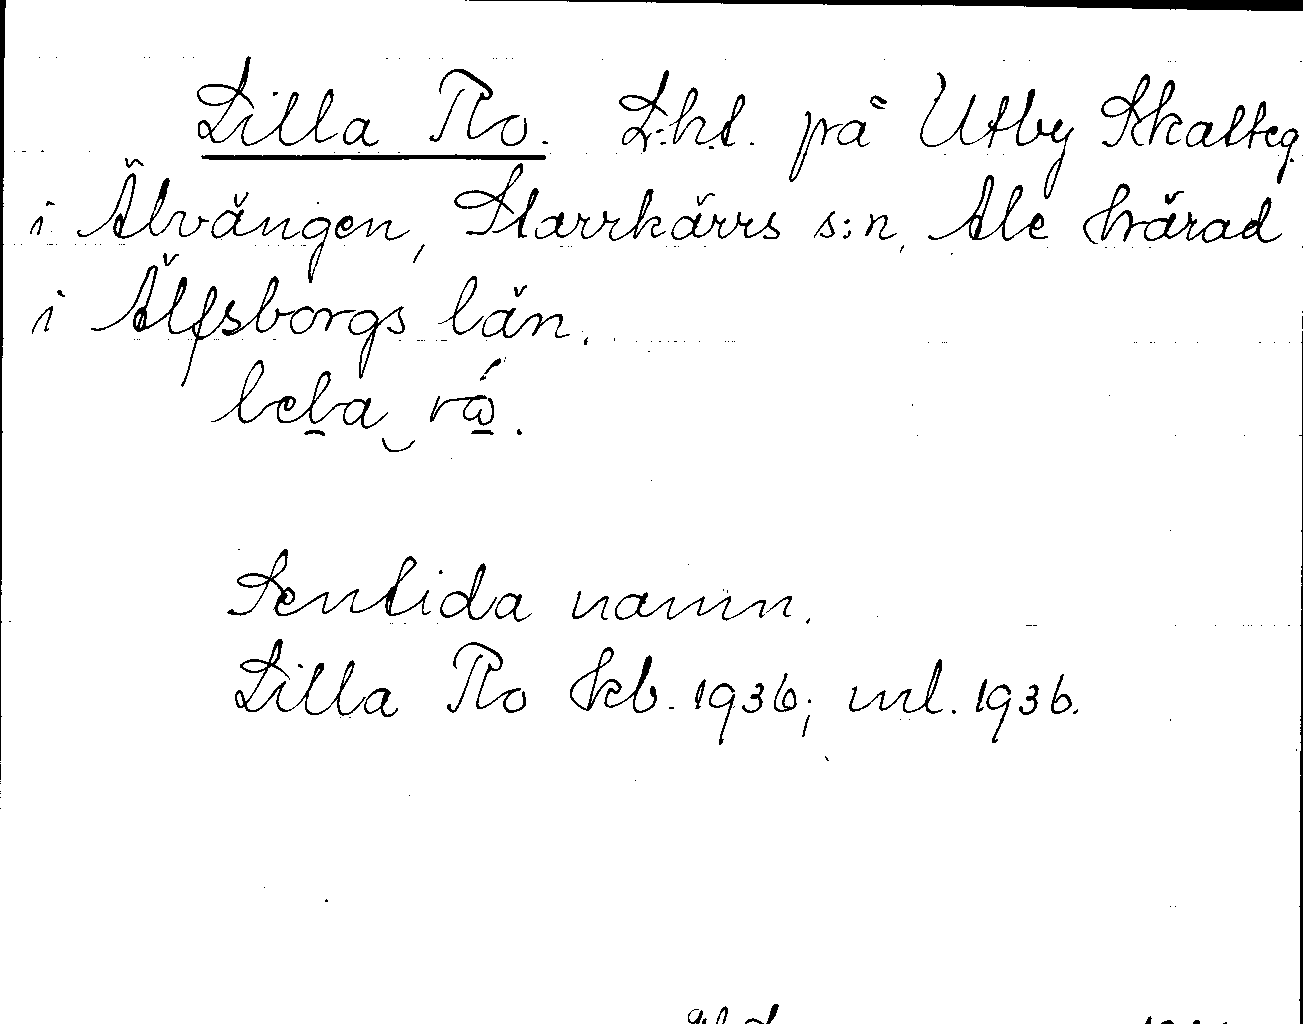 Lilla Ro. L:ht. på Utby Skatteg.
i Älvängen, Starrkärrs s:n, Ale härad
i Älfsborgs län.
Sentida namn.
Lilla Ro kb. 1936; ml. 1936.